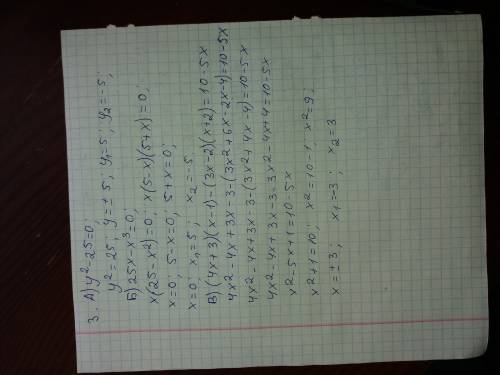 3. А) y²-25=0;
y²=25; y=±5; y₁=5; y₂=-5;
Б) 25x-x³=0;
x(25-x²)=0; x(5-x)(5+x)=0;
x=0; 5-x=0; 5+x=0;
x=0; x₁=5; x₂=-5
В) (4x+3)(x-1)-(3x-2)(x+2)=10-5x
4x²-4x+3x-3-(3x²+6x-2x-4)=10-5x
4x²-4x+3x-3-(3x²+4x-4)=10-5x
4x²-4x+3x-3-3x²-4x+4=10-5x
x²-5x+1=10-5x
x²+1=10; x²=10-1; x²=9;
x=±3; x₁=-3; x₂=3